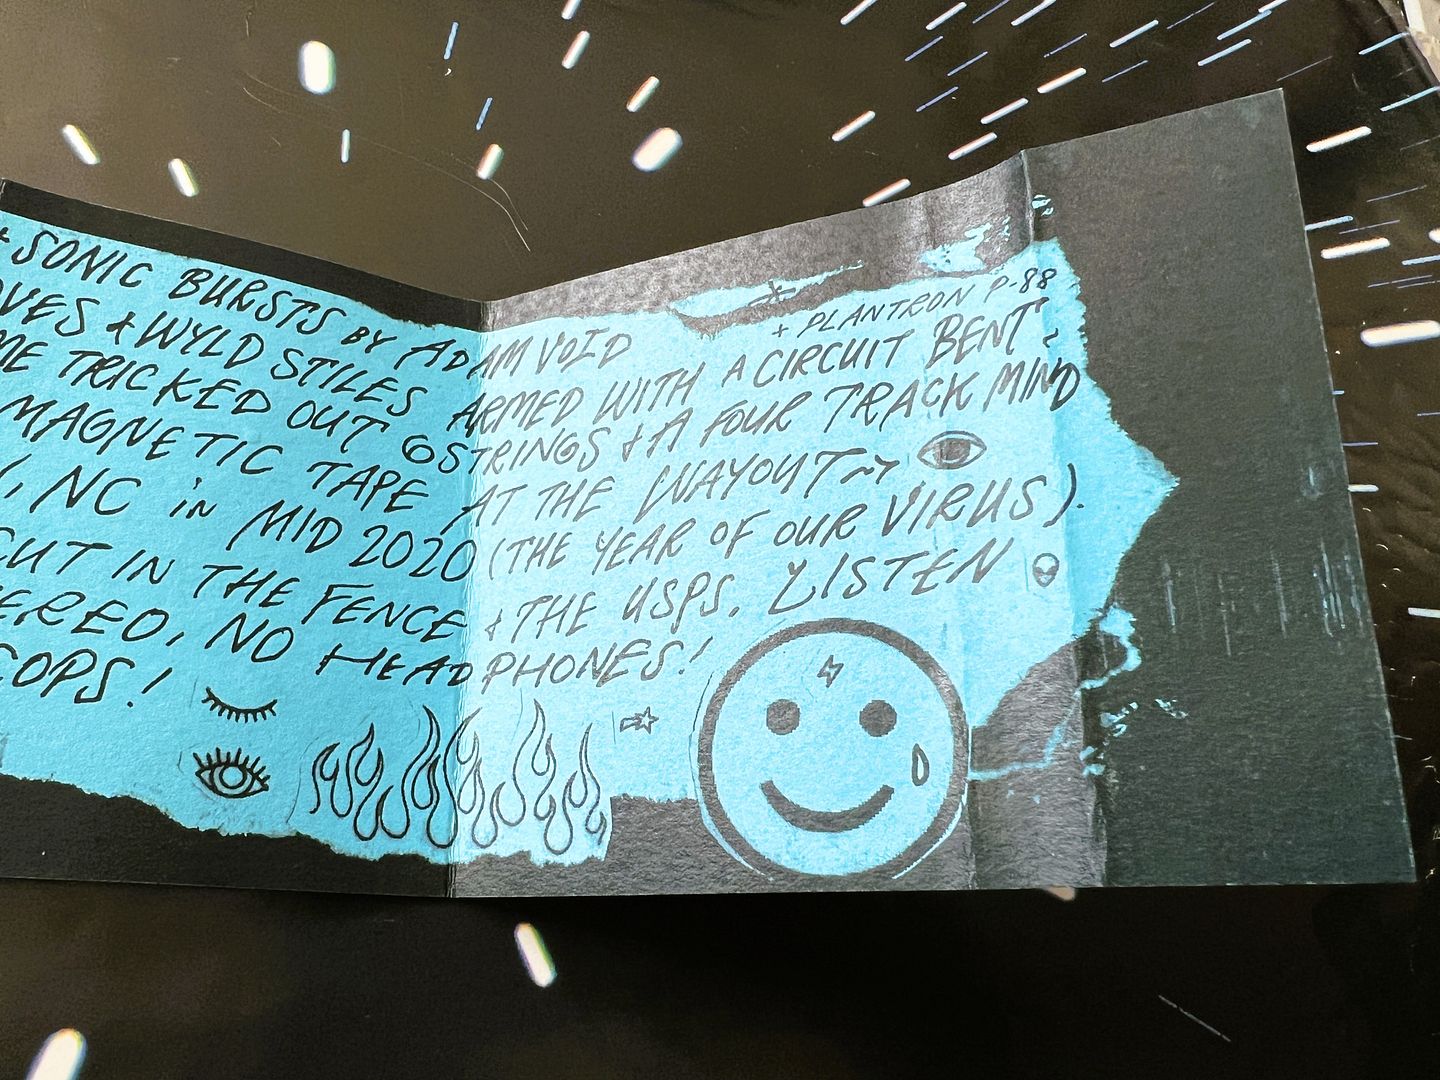 + SONIC BURSTS BY ADAM VOID
+ PLANTRON P-88
OVES + WYLD STILES ARMED WITH A CIRCUIT BENT
ME TRICKED OUT 6 STRINGS + A FOUR TRACK MIND
MAGNETIC TAPE AT THE WAYOUT
, NC in MID 2020 (THE YEAR OF OUR VIRUS).
CUT IN THE FENCE + THE USPS. LISTEN
EREO, NO HEADPHONES!
COPS!